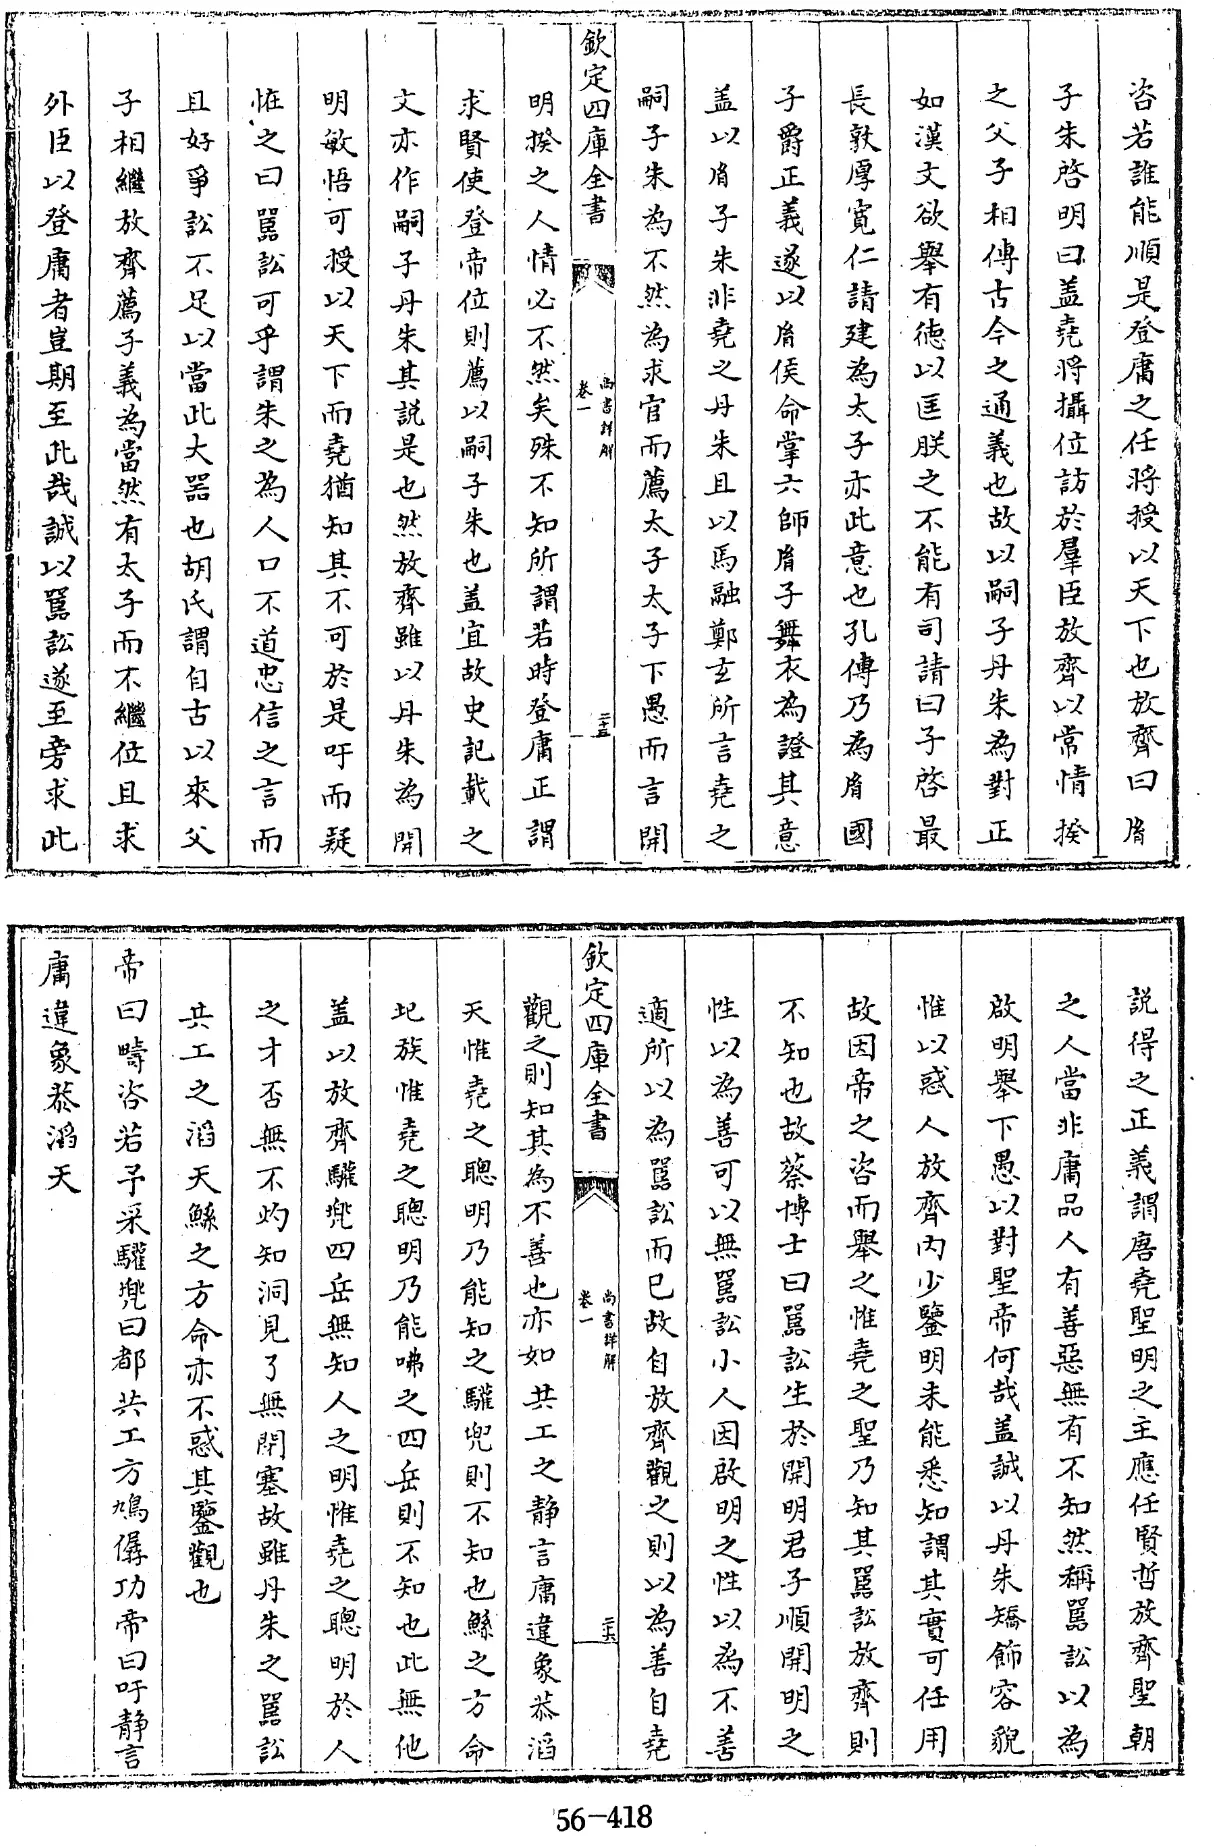 咨若誰能順是登庸之任將授以天下也放齊曰胤
子朱啓明曰盖堯將攝位訪於羣臣放齊以常情揆
之父子相傳古今之通義也故以嗣子丹朱為對正
如漢文欲舉有徳以匡朕之不能有司請曰子啓最
長敦厚寛仁請建為太子亦此意也孔傳乃為胤國
子爵正義遂以胤侯命掌六師胤子舞衣為證其意
盖以胤子朱非堯之丹朱且以馬融鄭玄所言堯之
嗣子朱為不然為求官而薦太子太子下愚而言開
欽定四庫全書
尚書詳解
卷一
二十五
明揆之人情必不然矣殊不知所謂若時登庸正謂
求賢使登帝位則薦以嗣子朱也盖宜故史記載之
文亦作嗣子丹朱其説是也然放齊雖以丹朱為開
明敏悟可授以天下而堯猶知其不可於是吁而疑
恠之曰嚚訟可乎謂朱之為人口不道忠信之言而
且好爭訟不足以當此大器也胡氏謂自古以來父
子相繼放齊薦子義為當然有太子而不繼位且求
外臣以登庸者豈期至此哉誠以嚚訟遂至旁求此
説得之正義謂唐堯聖明之主應任賢哲放齊聖朝
之人當非庸品人有善惡無有不知然稱嚚訟以為
啟明舉下愚以對聖帝何哉盖誠以丹朱矯飾容貌
惟以惑人放齊内少鑒明未能悉知謂其實可任用
故因帝之咨而舉之惟堯之聖乃知其嚚訟放齊則
不知也故蔡博士曰嚚訟生於開明君子順開明之
性以為善可以無嚚訟小人因啟明之性以為不善
適所以為嚚訟而已故自放齊觀之則以為善自堯
欽定四庫全書
尚書詳解
卷一
二十六
觀之則知其為不善也亦如共工之静言庸違象恭滔
天惟堯之聰明乃能知之驩兜則不知也鯀之方命
圮族惟堯之聰明乃能咈之四岳則不知也此無他
盖以放齊驩兜四岳無知人之明惟堯之聰明於人
之才否無不灼知洞見了無閉塞故雖丹朱之嚚訟
共工之滔天鯀之方命亦不惑其鑒觀也
帝曰疇咨若予采驩兜曰都共工方鳩僝功帝曰吁静言
庸違象恭滔天
56-418